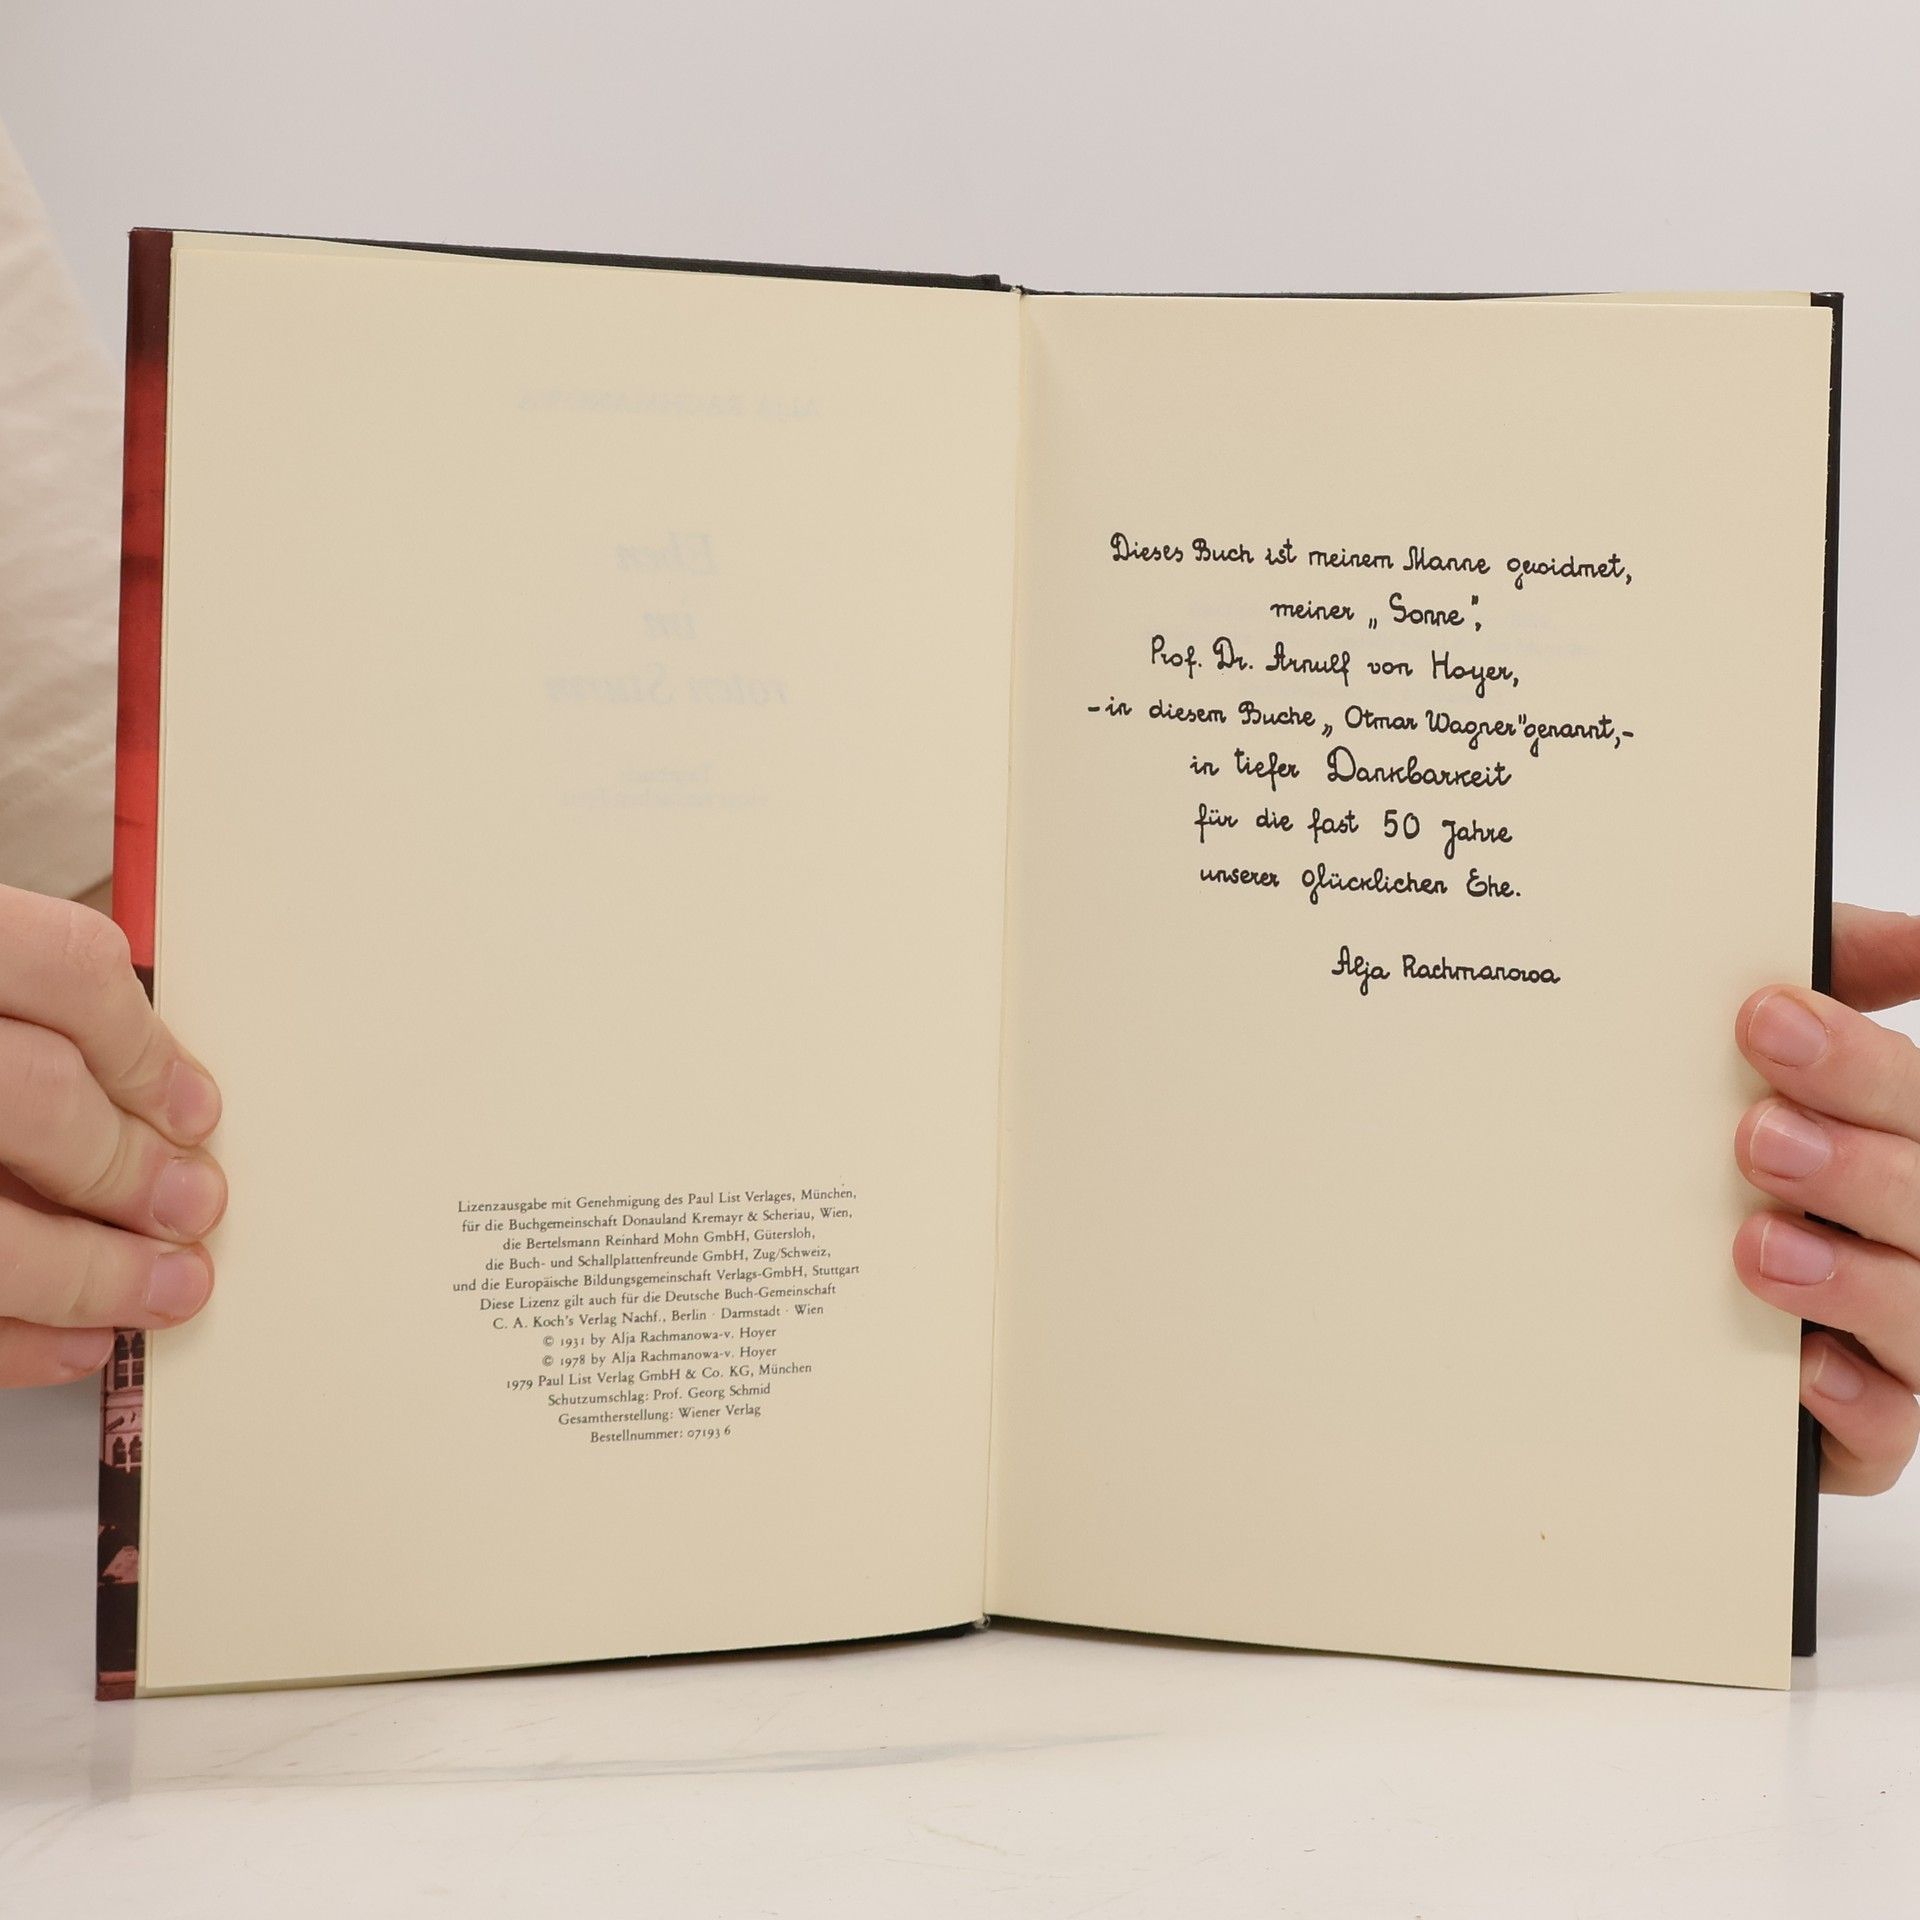 Lizenzausgabe mit Genehmigung des Paul List Verlages, München,
für die Buchgemeinschaft Donauland Kremayr & Scheriau, Wien,
die Bertelsmann Reinhard Mohn GmbH, Gütersloh,
die Buch- und Schallplattenfreunde GmbH, Zug/Schweiz,
und die Europäische Bildungsgemeinschaft Verlags-GmbH, Stuttgart
Diese Lizenz gilt auch für die Deutsche Buch-Gemeinschaft
C. A. Koch's Verlag Nachf., Berlin · Darmstadt · Wien
© 1931 by Alja Rachmanowa-v. Hoyer
© 1978 by Alja Rachmanowa-v. Hoyer
1979 Paul List Verlag GmbH & Co. KG, München
Schutzumschlag: Prof. Georg Schmid
Gesamtherstellung: Wiener Verlag
Bestellnummer: 07193 6
Dieses Buch ist meinem Manne gewidmet,
meiner „Sonne",
Prof. Dr. Arnulf von Hoyer,
- in diesem Buche „Otmar Wagner" genannt, -
in tiefer Dankbarkeit
für die fast 50 Jahre
unserer glücklichen Ehe.
Alja Rachmanowa